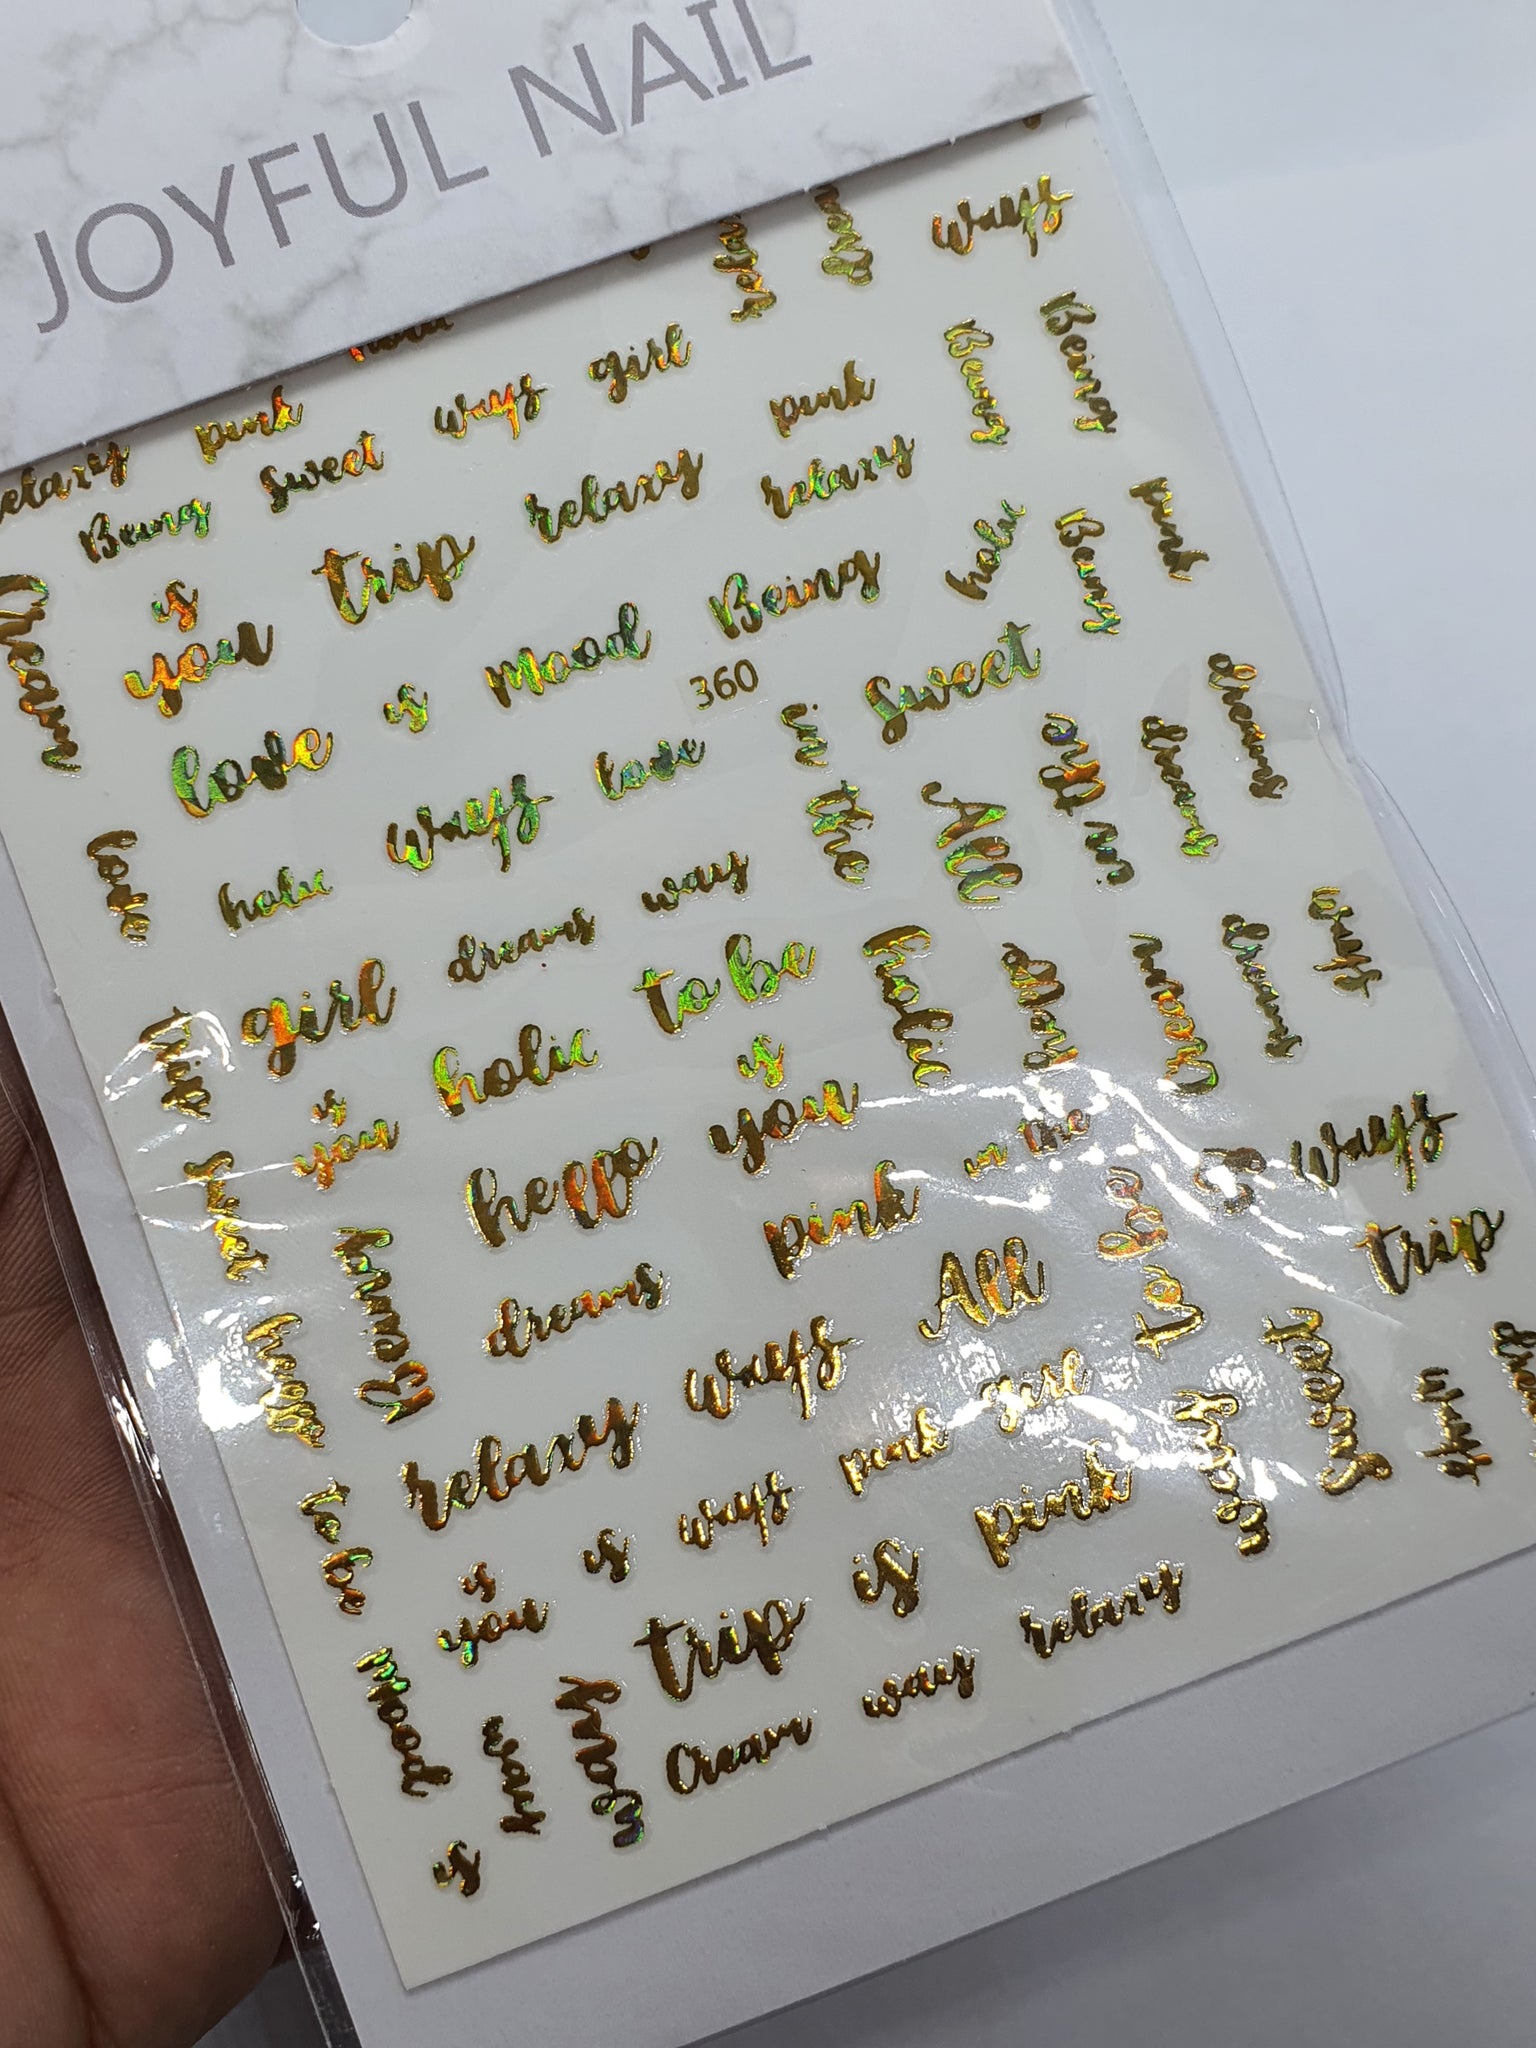 JOYFUL NAIL
ways
relaxy
pink
ways
girl
Being
Sweet
relaxy
pink
Being
Being
is
you
trip
relaxy
holic
Being
pink
Cream
love
is
mood
Being
360
in
Sweet
dreams
dreams
love
holic
ways
love
the
All
the
in
girl
dreams
way
to be
holic
Cream
dreams
ways
trip
is
you
holic
is
you
Sweet
hello
pink
in the
ways
trip
Being
dreams
All
to
hello
relaxy
ways
pink
girl
Sweet
to be
is
you
is
ways
trip
is
pink
mood
way
Cream
way
relaxy
is